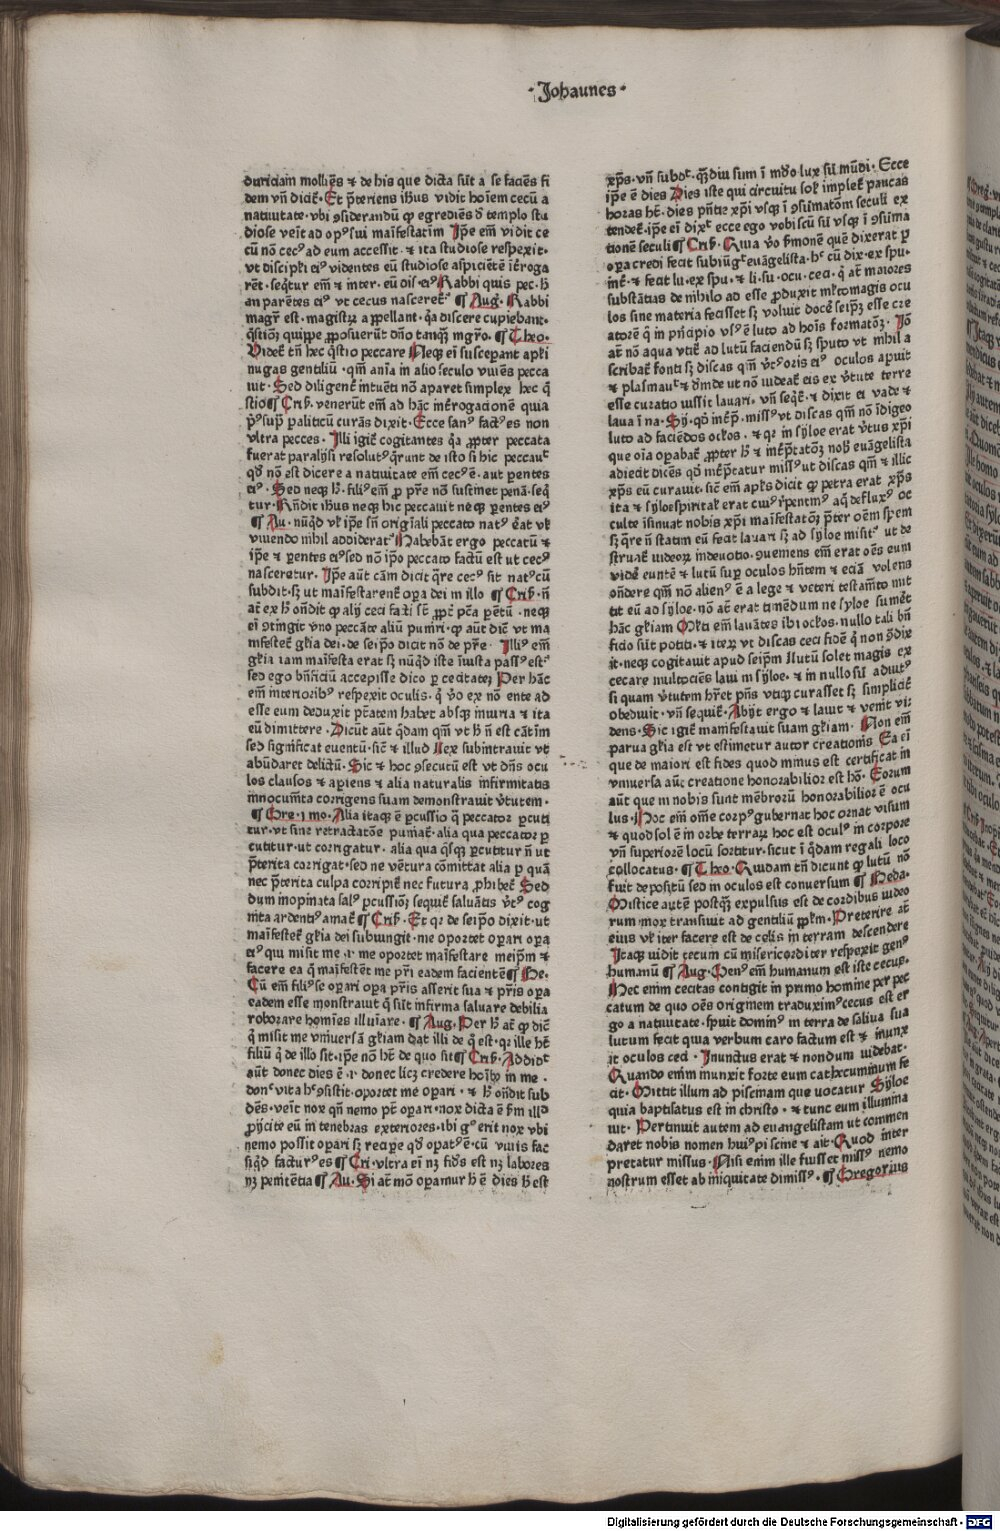 ·Johannes·
duriciam molliẽs ⁊ de his que dicta sũt a se faciẽs fi
dem vñ dicit̃· Et p̃teriens ihus vidit hoĩem cecũ a
natiuitate·vbi ꝯsiderandũ ꝙ egrediẽs d̃ templo stu
diose veĩt ad opꝰ sui maĩfestatiṁ Ip̃e em̃ vidit ce
cũ nõ cecꝰ ad eum accessit·⁊ ita studiose respexit·
vt discipli eiꝰ videntes eũ studiose aspiciẽtẽ ĩt̃roga
rẽt·seq̃tur em̃ ⁊ inter·eũ dis·eiꝰ Rabbi quis pec·h̃
an parẽtes eiꝰ vt cecus nasceret̃ ¶ Aug· Rabbi
magr̃ est·magistꝝ aꝑpellant·q̃a discere cupiebant·
q̃stiõꝫ quippe ꝓposuerũt dño tanqꝫ mgr̃o·¶ Theo·
Videt̃ tñ hec q̃stio peccare Neqꝫ ei susceperant apli
nugas gentiliũ·qm̃ aĩa in alio seculo viuẽs pecca
uit·Sed diligent̃ intuẽti nõ aparet simplex hec q̃
stio¶ Cris̃·venerũt em̃ ad hãc ĩnt̃rogacionẽ quia
pꝰ suꝑ paliticũ curãs dixit·Ecce sanꝰ factꝰ es non
vltra pecces· Illi igit̃ cogitantes q̃a ꝓpter peccata
fuerat paralysi resolutꝰ q̃runt de isto si hic peccauᵗ
qd̃ nõ est dicere a natiuitate em̃ cecꝰ ẽ·aut ꝑentes
eiꝰ·Sed neqꝫ h̃·filiꝰ em̃ ꝓ pr̃e nõ sustinet penã·seq̃
tur·Rñdit ihus neqꝫ hic peccauit neqꝫ ꝑentes eiꝰ
¶ Au·nũqd̃ vl̃ ip̃e sñ origĩali peccato natꝰ e̾at vl̃
viuendo nihil addiderat ̃ Habebãt ergo peccatũ ⁊
ip̃e ⁊ ꝑentes eiꝰ sed nõ ip̃o peccato factũ est ut cecꝰ
nasceretur·Ip̃e aũt cãm dicit q̃re cecꝰ sit natꝰ cũ
subdit·sꝫ ut maĩfestarent̃ oꝑa dei in illo ¶ Cris̃·ñ
at̃ ex h̃ oñdit ꝙ alij ceci facti sc̃ ꝓpt̃ pc̃a ꝑẽtũ·neqꝫ
ei ꝯtingit vno peccãte aliũ puniri·ꝙ aũt diẽ vt ma
nifestet̃ gl̃ia dei·de seip̃o dicit nõ de pr̃e· Illiꝰ em̃
gl̃ia iam maĩfesta erat sꝫ nũqd̃ iste ĩiusta passꝰ est?
sed ego bñficiũ accepisse dico ꝑ cecitateꝫ Per hãc
em̃ interioribꝰ respexit oculis·q̃ v̾o ex nõ ente ad
esse eum deduxit p̃tatem habet absqꝫ iniuria ⁊ ita
eũ dimittere·Dicũt aũt q̃dam qm̃ vt h̃ ñ est cãtim
sed significat euentũ·sic̃ ⁊ illud Lex subintrauit vt
abũdaret delictũ·Sic ⁊ hoc ꝯsecutũ est vt dñs ocu
los clausos ⁊ aꝑiens ⁊ alia naturalis infirmitatis
innocum̃ta corrigens suam demonstrauit v̾tutem·
¶ Gre·ĩ mo·Alia itaqꝫ ẽ ꝑcussio q̃ peccator ꝑcuti
tur·vt sine retractatõe puniat̃·alia qua peccator ꝑ
cutitur·ut corrigatur·alia qua q̃sqꝫ ꝑcutitur ñ ut
p̃terita corrigat·sed ne vẽtura cõmittat alia ꝑ quã
nec p̃terita culpa corripit̃ nec futura ꝓhibet̃ Sed
dum inopinata salꝰ ꝑcussiõꝫ sequit̃ saluãtis v̾tꝰ cog
nita ardentiꝰ amat̃ ¶ Cris̃·Et qꝛ de seip̃o dixit·ut
maĩfestet̃ gl̃ia dei subiungit·me oportet oꝑari oꝑa
eiꝰ qui misit me·ı·me oportet maĩfestare meip̃m ⁊
facere ea q̃ maĩfestẽt me pr̃i eadem facientẽ¶ Be·
Cũ em̃ filiꝰ se oꝑari oꝑa pr̃is asserit sua ⁊ pr̃is oꝑa
eadem esse monstrauit q̃ sũt infirma saluare debilia
roborare homĩes illuĩare·¶ Aug·Per h̃ at̃ ꝙ diẽ
q̃ misit me vniuersã gl̃iam dat illi de q̃ est·qꝛ ille ht̃
filiũ q̃ de illo sit·ip̃e nõ ht̃ de quo sit¶ Cris̃·Addidᵗ
aũt donec dies ẽ·ı·donec licꝫ credere hoĩbꝰ in me·
donᶜ vita hᶜ ꝯsistit·oportet me oꝑari·⁊ h̃ oñdit sub
dẽs·veĩt nox qñ nemo pt̃ oꝑari·nox dicta ẽ s̃m illd̃
ꝓijcite eũ in tenebras exteriores·ibi gͦ erit nox vbi
nemo possit oꝑari sꝫ recipe qd̃ oꝑatꝰ ẽ·cũ viuis fac
siq̃d facturꝰ es¶ Cri·vltra ei nꝫ fid̃s est nꝫ labores
nꝫ penitẽtia¶ Au·Si at̃ mõ oꝑamur h̃ ẽ dies h̃ est
xp̃s·vñ subdᵗ·qꝫdiu sum ĩ mũdo lux sũ mũdi·Ecce
ip̃e ẽ dies Dies iste qui circuitu sol̃ implet̃ paucas
horas ht̃·dies p̃ntie xp̃i vsqꝫ ĩ ꝯsũmatõem seculi ex
tendet̃·ip̃e ei dixᵗ ecce ego vobiscũ sũ vsqꝫ ĩ ꝯsũma
tionẽ seculi¶ Cris̃·Quia v̾o s̾monẽ quẽ dixerat ꝑ
oꝑa credi fecit subiũgᵗ euãgelista·hᶜ cũ dix·ex spu·
in t̃·⁊ fecit lu·ex spu·⁊ li·su·ocu·ceci·q̃ at̃ maiores
substãtias de nihilo ad esse ꝓduxit ml̃tomagis ocu
los sine materia fecisset sꝫ voluit docẽ seip̃ꝫ esse cre
atorẽ q̃ in pñcipio vsꝰ ẽ luto ad hoĩs formatõꝫ·Iõ
at̃ nõ aqua vtit̃ ad lutũ faciendũ sꝫ sputo vt nihil a
scribat̃ fonti sꝫ discas qm̃ v̾tꝰ oris eiꝰ oculos aꝑuit
⁊ plasmauᵗ ⁊ d̃inde ut nõ uideat̃ eis ex v̾tute terre
esse curatio iussit lauari·vñ seqt̃·⁊ dixit ei vade ⁊
laua ĩ na·Sy·qd̃ int̃p̃·missꝰ vt discas qm̃ nõ ĩdigeo
luto ad faciẽdos oc̃los·⁊ qꝛ in syloe erat v̾tus xp̃i
que oĩa oꝑabat̃ ꝓpter h̃ ⁊ int̃p̃tatõꝫ noĩs euãgelista
adiecit dicẽs qd̃ int̃p̃tatur missꝰ ut discas qm̃ ⁊ illic
xp̃s eũ curauit·sic̃ em̃ apl̃s dicit ꝙ petra erat xp̃s
ita ⁊ syloe spiritat̃ erat cuiꝰ rẽpentinꝰ aq̃ defluxꝰ oc
culte ĩsinuat nobis xp̃i maĩfestatõꝫ p̃ter oẽm spem
sꝫ q̃re ñ statim eũ fecit lauari sꝫ ad syloe misitꝰ ut de
struat̃ iudeoꝝ indeuotio·ꝯuemens em̃ erat oẽs eum
videre euntẽ ⁊ lutũ suꝑ oculos hñtem ⁊ eciã volens
oñdere qm̃ nõ alienꝰ ẽ a lege ⁊ veteri testam̃to mit
tit eũ ad syloe·nõ at̃ erat timẽdum ne syloe sumẽt
hãc gl̃iam Ml̃ti em̃ lauãtes ibi oc̃los·nullo tali bñ
ficio sũt potiti·⁊ iteꝝ vt discas ceci fidẽ q̃ non ꝯ̃dix
it·neqꝫ cogitauit apud seip̃m Ilutũ solet magis ex
cecare multociẽs laui in syloe·⁊ in nullo sũ adiutꝰ
si quam v̾tutem hr̃et pñs vtiqꝫ curasset sꝫ simplicit̃
obediuit·vñ sequit̃·Abijt ergo ⁊ lauit ⁊ venit vi:
dens·Sic igit̃ manifestauit suam gl̃iam· Non em̃
parua gl̃ia est vt estimetur autor creationis Ea ei
que de maiori est fides quod minus est certificat in
vniuersa aũt creatione honorabilior est hõ·Eorum
aũt que in nobis sunt mẽbrorũ honorabilior ẽ ocu
lus·Hoc em̃ om̃e corpꝰ gubernat hoc ornat visum
⁊ quod sol ẽ in orbe terraꝝ hoc est oculꝰ in corpore
vñ superiorẽ locũ sortitur·sicut ĩ q̃dam regali loco
collocatus·¶ Theo·Quidam tñ dicunt ꝙ lutũ nõ
fuit depositũ sed in oculos est conuersum ¶ Beda·
Mistice autẽ postqꝫ expulsus est de cordibus iudeo
rum mox transiuit ad gentiliũ ppl̃m·Preterire at̃
eius vl̃ iter facere est de celis in terram descendere
Itaqꝫ uidit cecum cũ misericorditer respexit genꝰ
humanũ ¶ Aug·Genꝰ em̃ humanum est iste cecus·
Nec enim cecitas contigit in primo homine per pec
catum de quo oẽs originem traduximꝰ cecus est er
go a natiuitate·spuit dominꝰ in terra de saliua sua
lutum fecit quia verbum caro factum est ⁊ inunx
it oculos ceci· Inunctus erat ⁊ nondum uidebat·
Quando enim inunxit forte eum cathecuminum fe
cit·Mittit illum ad piscinam que uocatur Syloe
quia baptisatus est in christo·⁊ tunc eum illumina
uit·Pertinuit autem ad euangelistam ut commen
daret nobis nomen huiꝰ piscine ⁊ ait·Quod inter
pretatur missus·Nisi enim ille fuisset missꝰ nemo
nostrum esset ab iniquitate dimissꝰ·¶ Gregorius
Digitalisierung gefördert durch die Deutsche Forschungsgemeinschaft - DFG